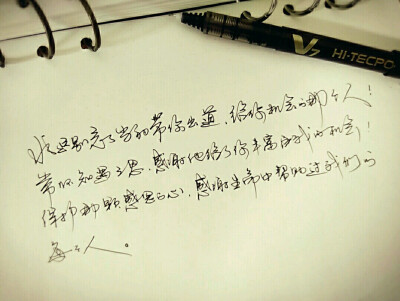 V7 HI-TECPO
永远别忘了当初带你出道,给你机会的那个人!
常怀知遇之恩,感谢他给了你丰富自我的机会!
保持那颗感恩的心,感谢生命中帮助过我们的
每个人。